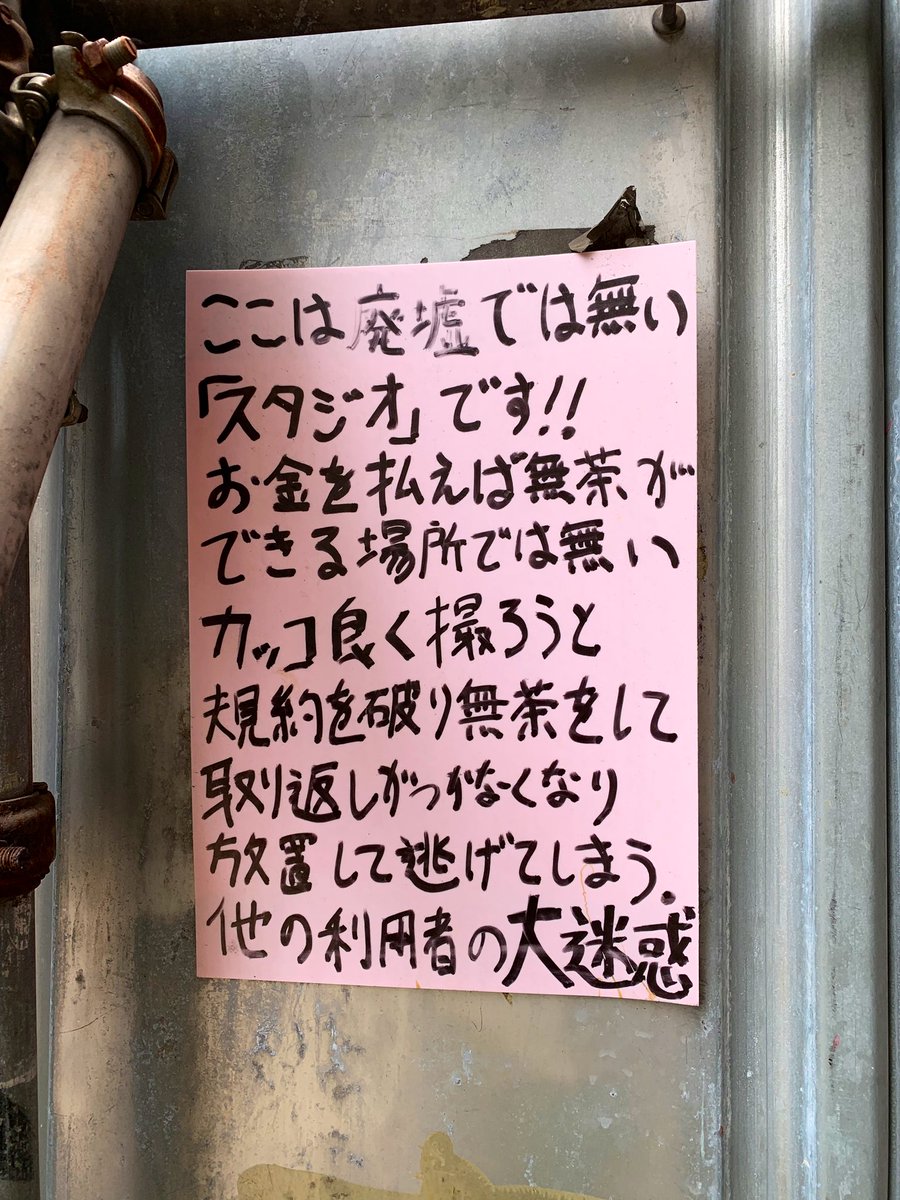 ここは廃墟では無い
「スタジオ」です!!
お金を払えば無茶が
できる場所では無い
カッコ良く撮ろうと
規約を破り無茶をして
取り返しがつかなくなり
放置して逃げてしまう.
他の利用者の大迷惑